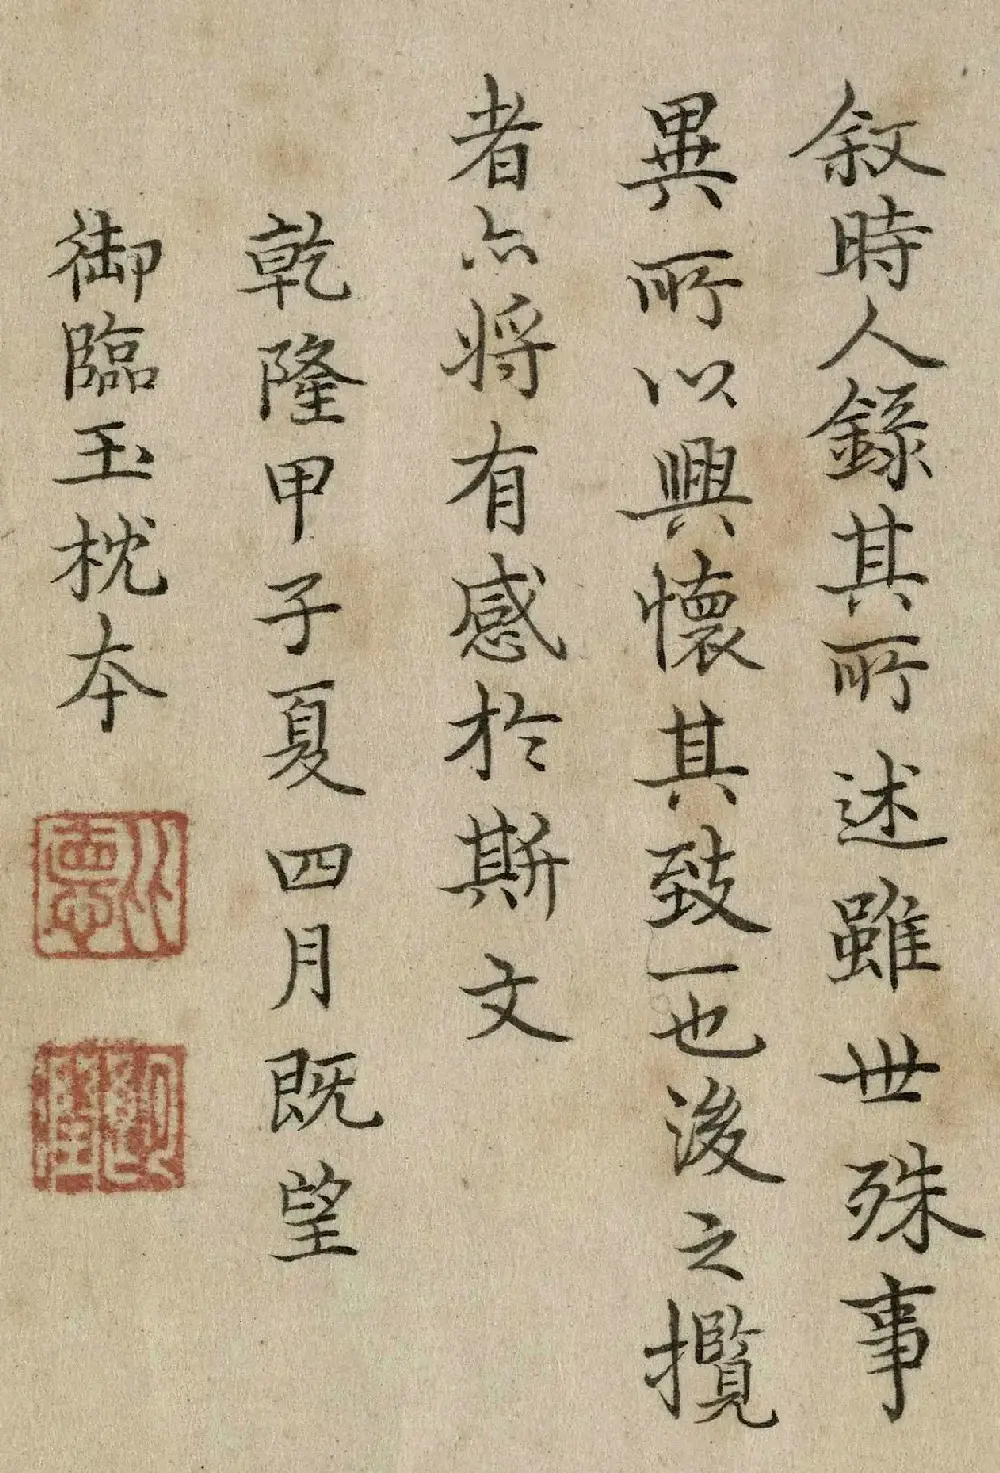 叙時人錄其所述雖世殊事
異所以興懷其致一也後之攬
者亦将有感於斯文
乾隆甲子夏四月既望
御臨玉枕本